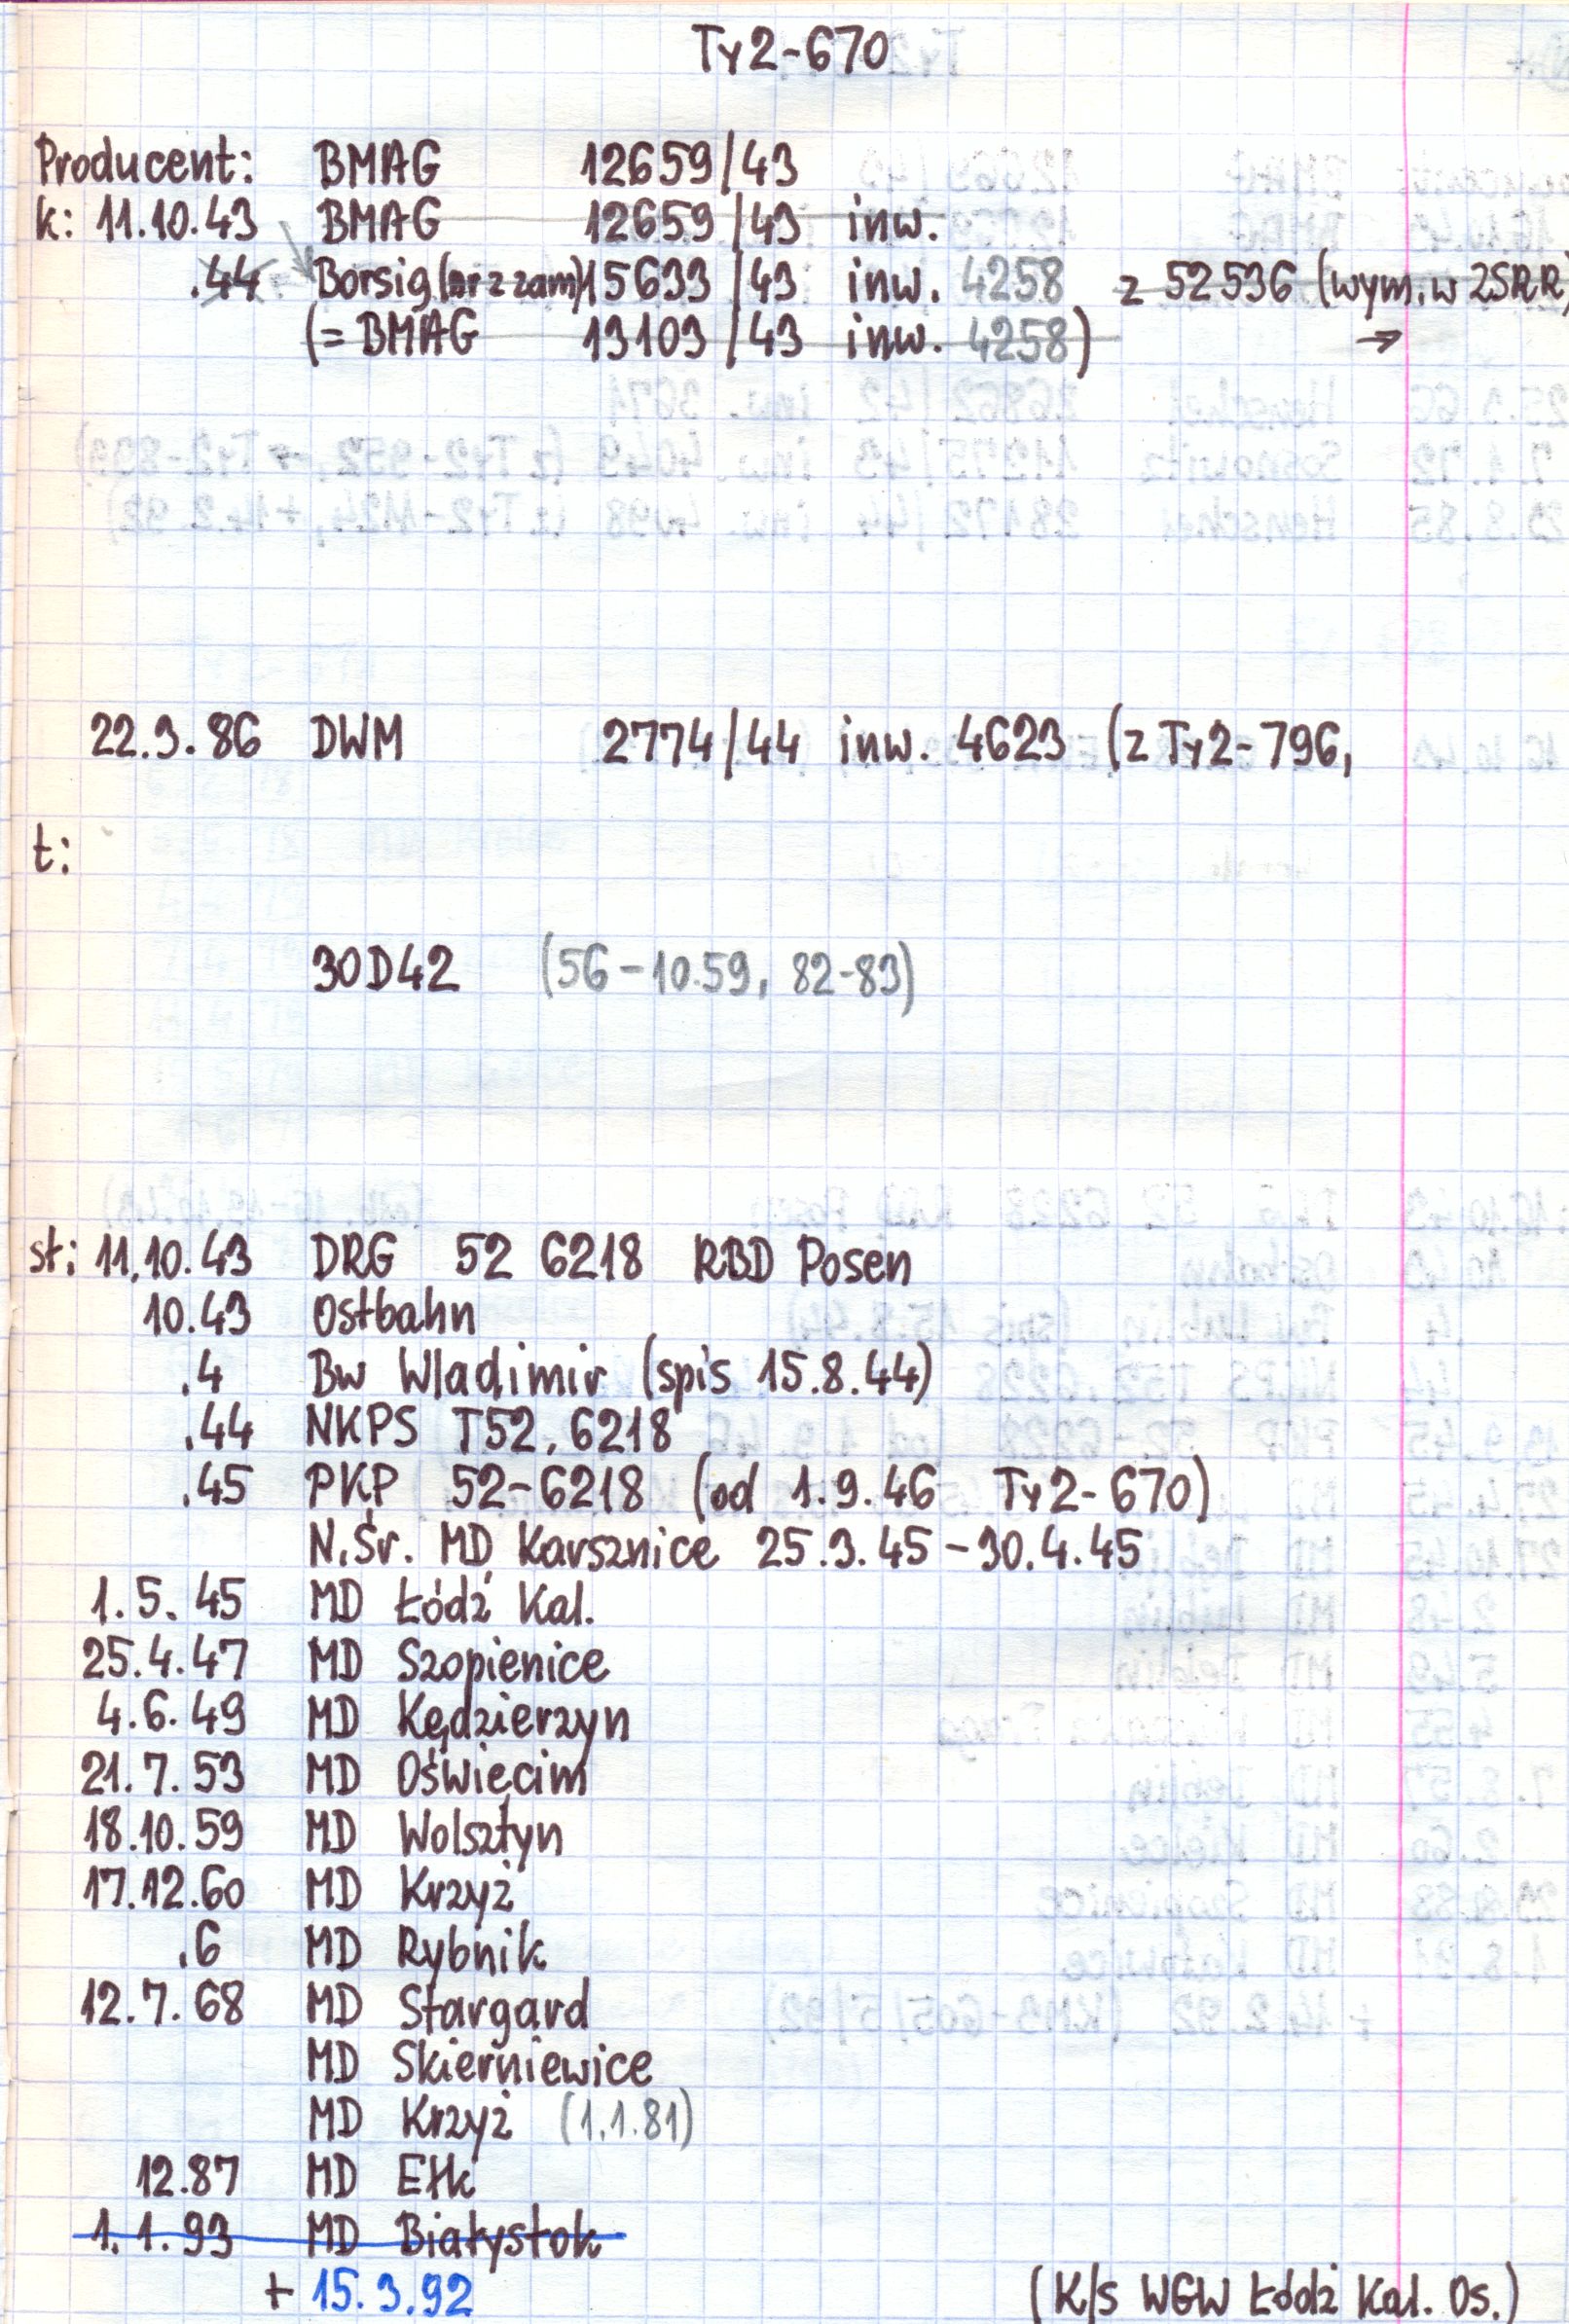 Ty2-670
Producent: BMAG 12659/43
k: 11.10.43 BMAG 12659/43 inw.
.44 Borsig (nr z zam) 15633/43 inw. 4258 z 52 536 (wym. w ZSRR)
(= BMAG 13103/43 inw. 4258) →
22.3.86 DWM 2774/44 inw. 4623 (z Ty2-796,
t:
30D42 (56-10.59, 82-83)
st: 11.10.43 DRG 52 6218 RBD Posen
10.43 Ostbahn
.4 Bw Wladimir (spis 15.8.44)
.44 NKPS T52.6218
.45 PKP 52-6218 (od 1.9.46 Ty2-670)
N.Śr. MD Karsznice 25.3.45-30.4.45
1.5.45 MD Łódź Kal.
25.4.47 MD Szopienice
4.6.49 MD Kędzierzyn
21.7.53 MD Oświęcim
18.10.59 MD Wolsztyn
17.12.60 MD Krzyż
.6 MD Rybnik
12.7.68 MD Stargard
MD Skierniewice
MD Krzyż (1.1.81)
12.87 MD Ełk
1.1.93 MD Białystok
+ 15.3.92 (K/s WGW Łódź Kal. Os.)